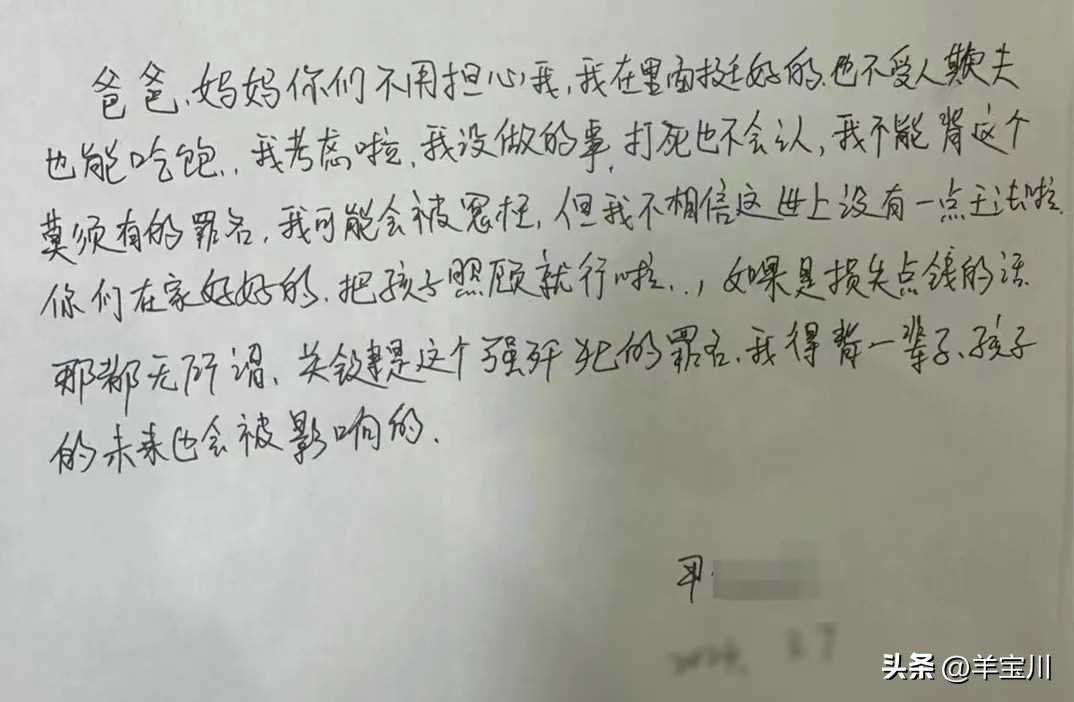 爸爸、妈妈你们不用担心我,我在里面挺好的、也不受人欺夫
也能吃饱.. 我考虑啦,我没做的事,打死也不会认,我不能背这个
莫须有的罪名,我可能会被冤枉,但我不相信这世上没有一点王法啦.
你们在家好好的、把孩子照顾就行啦..,如果是损失点钱的话、
那都无所谓、关键是这个强歼犯的罪名、我得背一辈子、孩子
的未来也会被影响的、
头条 @羊宝川